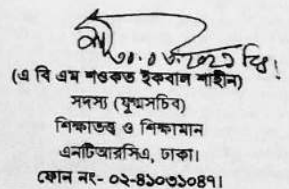 (এ বি এম শওকত ইকবাল শাহীন)
সদস্য (যুগ্মসচিব)
শিক্ষাতত্ত্ব ও শিক্ষামান
এনটিআরসিএ, ঢাকা।
ফোন নং- ০২-৪১০৩১০৪৭।